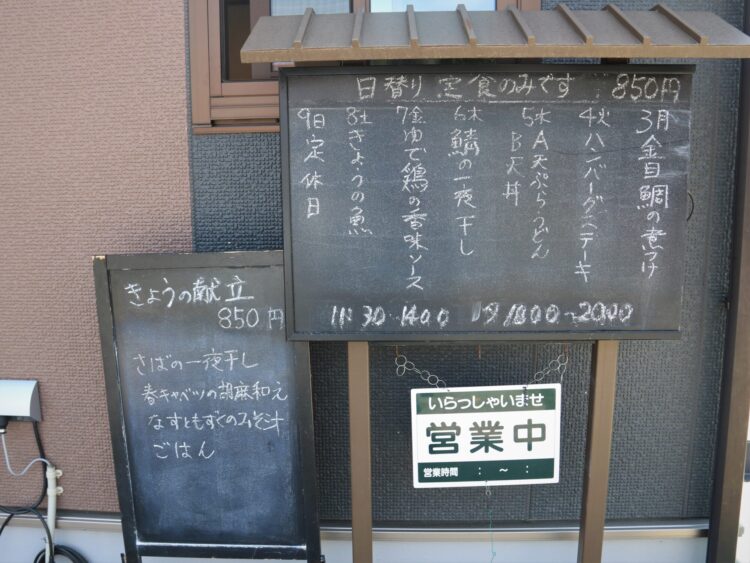 日替り定食のみです 850円
3月 金目鯛の煮つけ
4火 ハンバーグステーキ
5水 A天ぷらうどん
B天丼
6木 鱗の一夜干し
7金 ゆで鶏の香味ソース
8土 きょうの魚
9日 定休日
11 30 1400
1800~2000
きょうの献立
850円
さばの一夜干し
春キャベツの胡麻和え
なすともずくのみそ汁
ごはん
いらっしゃいませ
営業中
営業時間 : ~ :